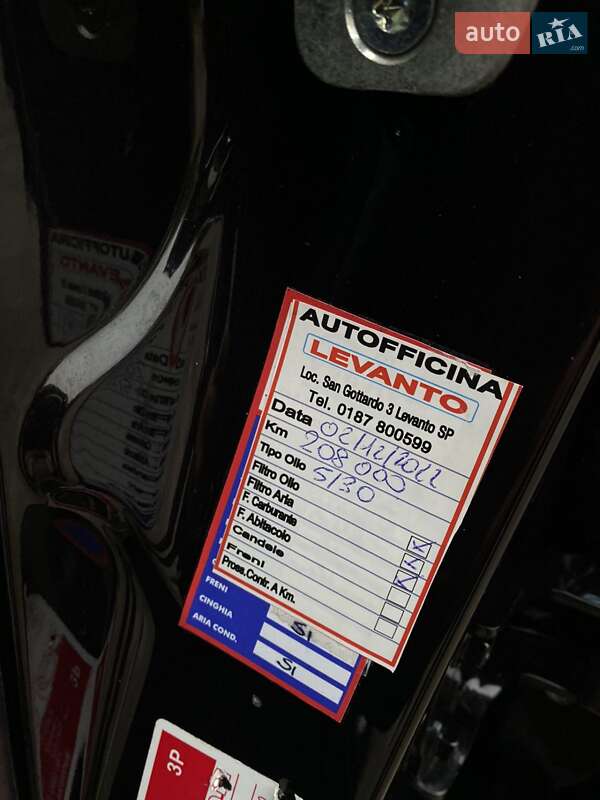 auto RIA.com
AUTOFFICINA
LEVANTO
Loc. San Gottardo 3 Levanto SP
Tel. 0187 800599
Data 02/12/2022
Km 208 000
Tipo Olio 5/30
Filtro Olio
Filtro Aria
F. Carburante
F. Abitacolo
Candele
Freni
Pross.Contr. A Km.
FRENI
CINGHIA SI
ARIA COND. SI
3P